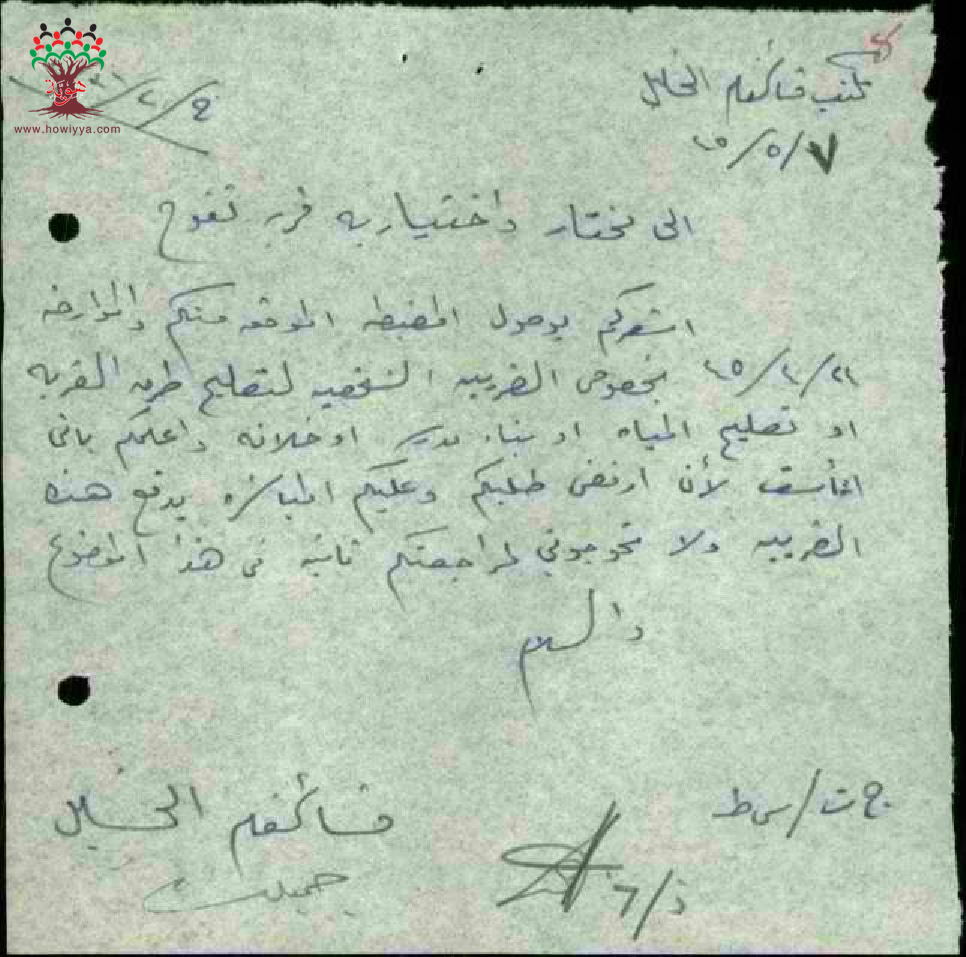 مكتب قائمقام الخليل
٧/٥/٤٥
الى مختار واختياريه قرية تفوح
اشعركم بوصول المضبطه الموقعه منكم والمؤرخه
بخصوص الضريبه الشخصيه لتصليح طريق القريه
او تصليح المياه او بناء او خلافه واعلمكم بانى
اتأسف لأن ارفض طلبكم وعليكم المباشره بدفع هذه
الضريبه ولا تحوجونى لمراجعتكم ثانية فى هذا الموضوع
والسلام
قائمقام الخليل
www.howiyya.com